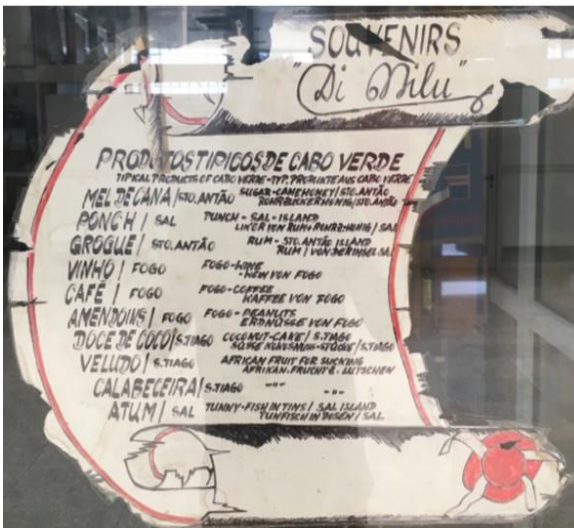 SOUVENIRS
"Di Milu"
PRODUTOS TIPICOS DE CABO VERDE
TIPICAL PRODUCTS OF CABO VERDE - TYP. PRODUKTE AUS CABO VERDE
MEL DE CANA / STO. ANTÃO SUGAR-CANEHONEY / STO. ANTÃO
ROHRZUCKERHONIG / STO. ANTÃO
PONCH / SAL PUNCH - SAL - ISLAND
LIKÖR VON RUM + ROHRZ.HONIG / SAL
GROGUE / STO. ANTÃO RUM - STO. ANTÃO ISLAND
RUM / VON DER INSEL SAL
VINHO / FOGO FOGO-WINE
VON FOGO
CAFÉ / FOGO FOGO-COFFEE
KAFFEE VON FOGO
AMENDOINS / FOGO FOGO-PEANUTS
ERDNÜSSE VON FOGO
DOCE DE COCO / S.TIAGO COCONUT-CAKE / S.TIAGO
SÜSSE KOKOSNUSS-STÜCKE / S.TIAGO
VELUDO / S.TIAGO AFRICAN FRUIT FOR SUCKING
AFRIKAN. FRUCHT Z. LUTSCHEN
CALABECEIRA / S.TIAGO -"- -"-
ATUM / SAL TUNNY-FISH IN TINS / SAL ISLAND
TUNFISCH IN DOSEN / SAL